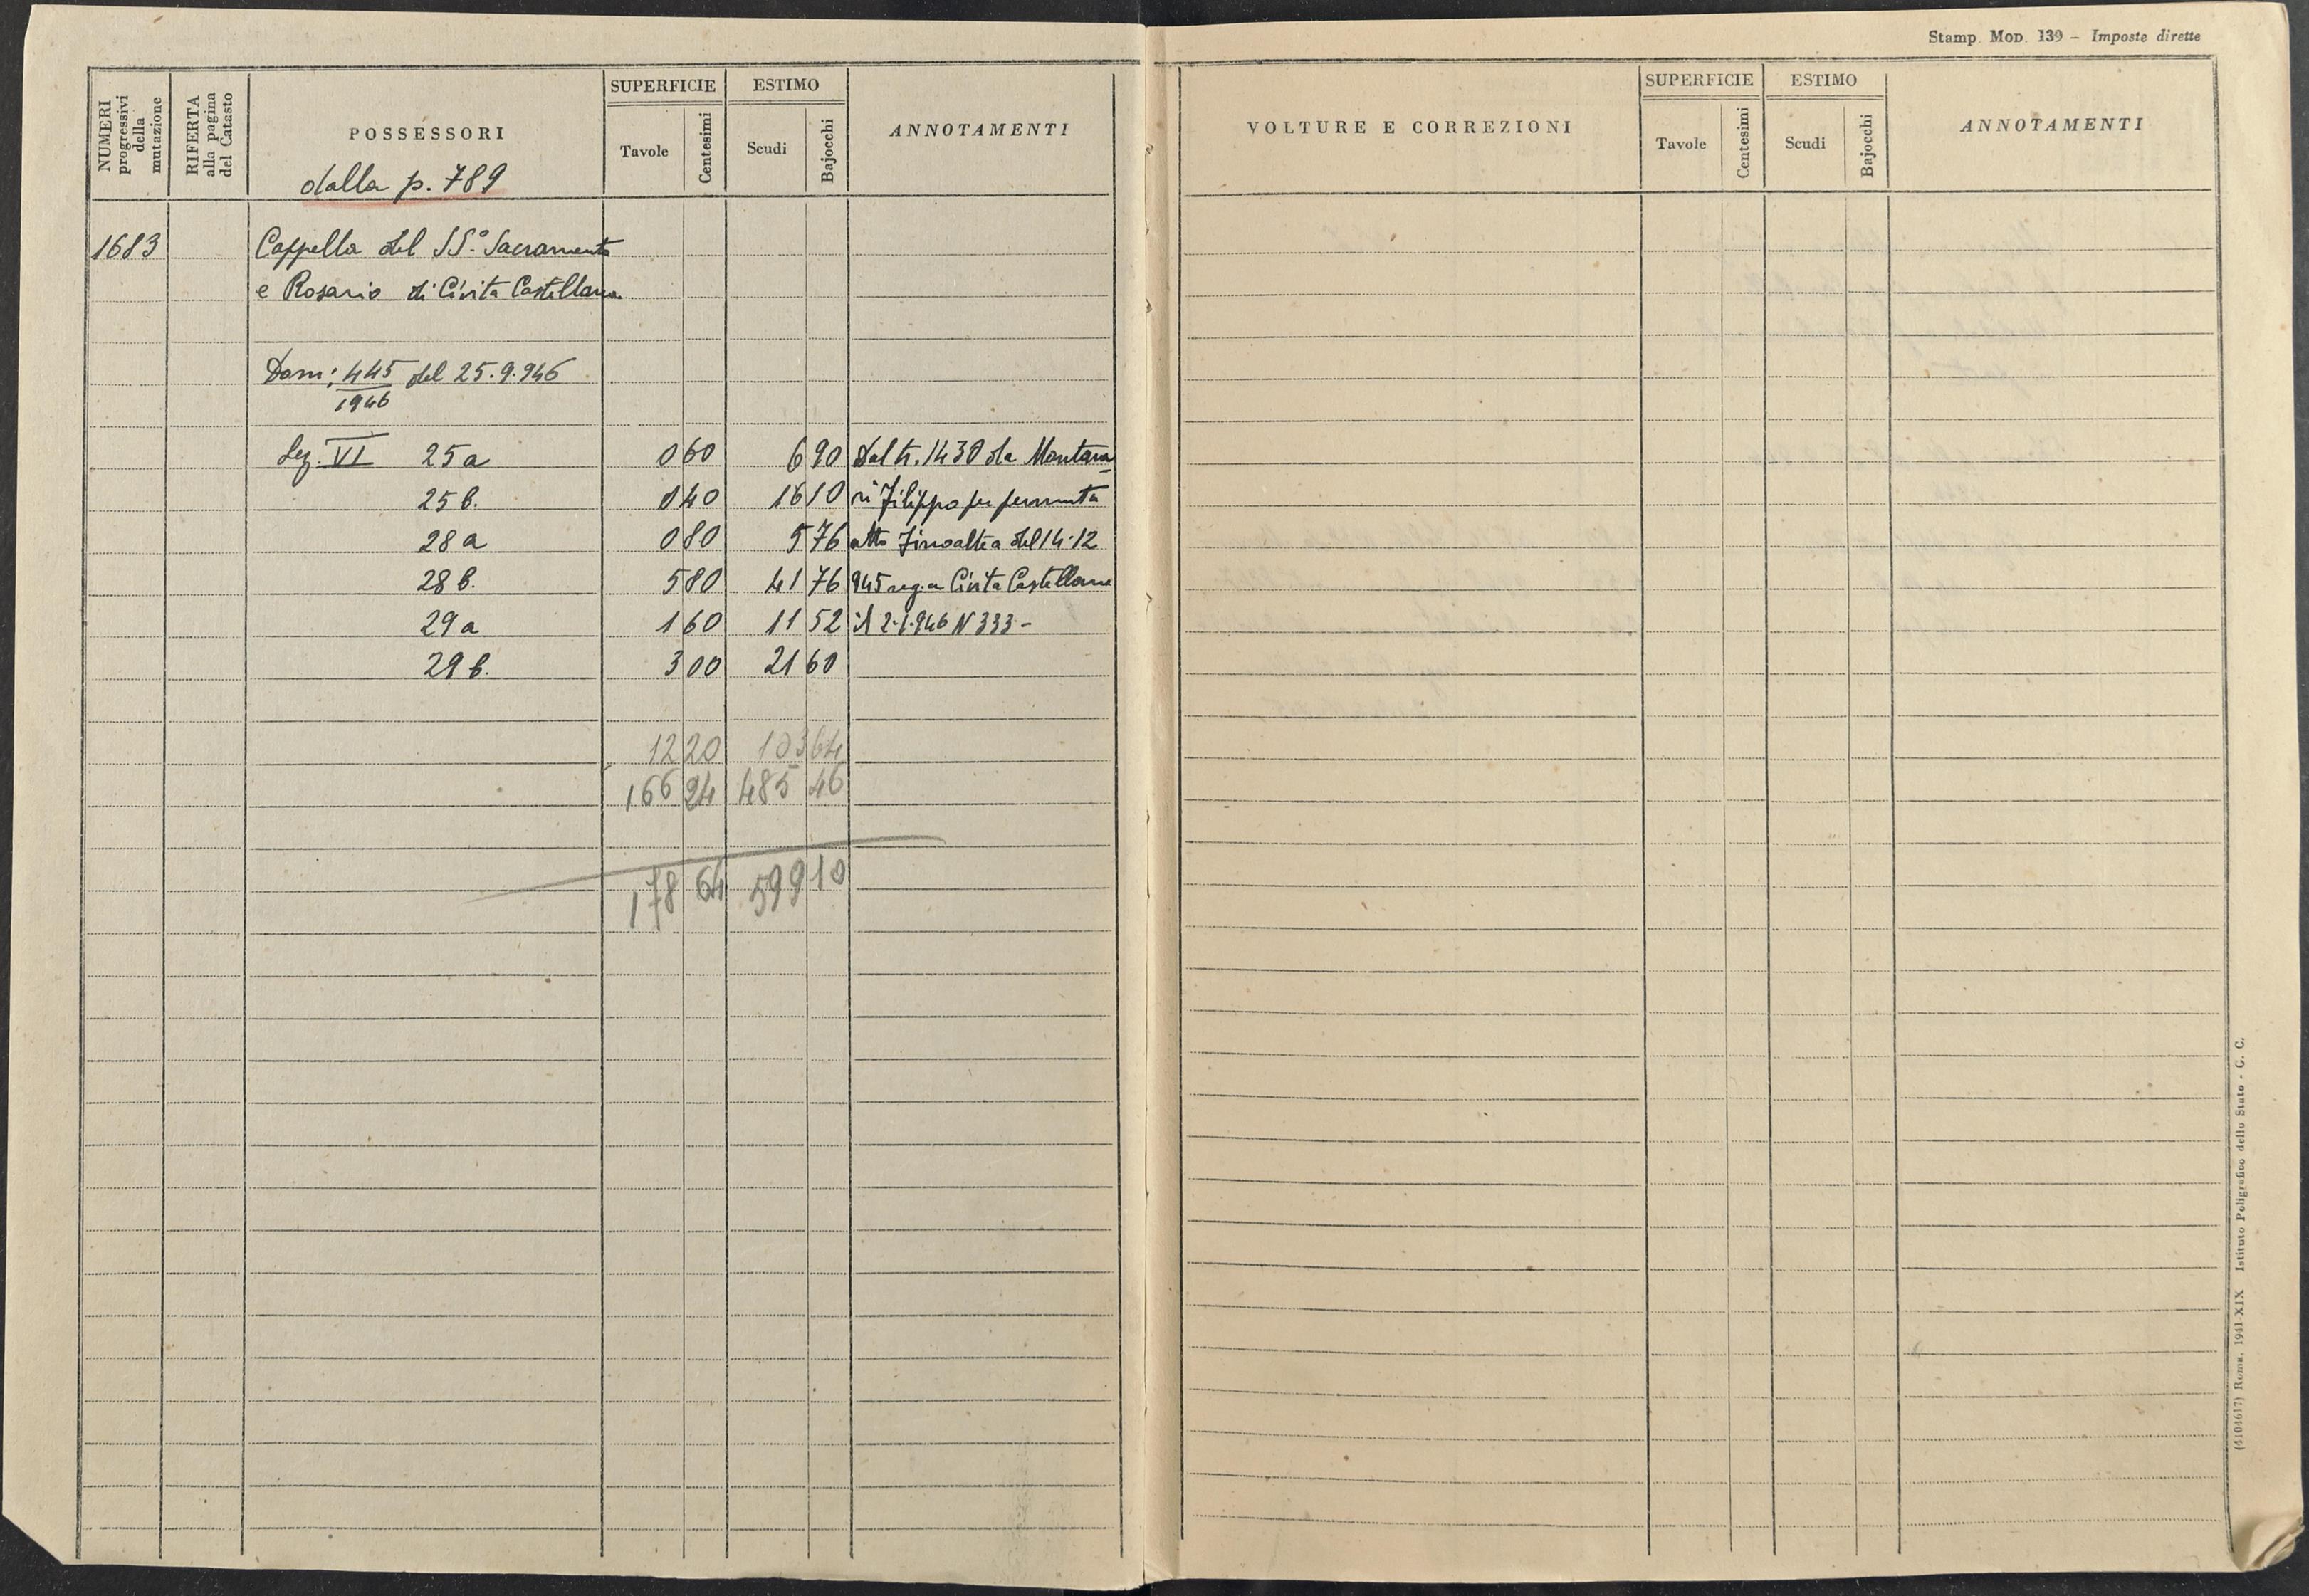 Stamp. Mod. 139 – Imposte dirette
NUMERI progressivi della mutazione
RIFERTA alla pagina del Catasto
POSSESSORI
SUPERFICIE
Tavole
Centesimi
ESTIMO
Scudi
Bajocchi
ANNOTAMENTI
VOLTURE E CORREZIONI
SUPERFICIE
Tavole
Centesimi
ESTIMO
Scudi
Bajocchi
ANNOTAMENTI
dalla p. 789
1683 Cappella del SS.º Sacramento
e Rosario di Civita Castellana
Dom: 445 del 25.9.946
1946
Sez. VI 25a 0 60 6 90 Dal tr. 1430 da Montana
25 b. 0 40 16 10 ri Filippo per permuta
28 a 0 80 5 76 atto del 14.12
28 b. 5 80 41 76 945 reg. a Civita Castellana
29 a 1 60 11 52 il 2.1.946 N 333 -
29 b. 3 00 21 60
12 20 103 64
166 24 485 46
178 64 599 10
(4104617) Roma, 1941-XIX Istituto Poligrafico dello Stato - G. C.